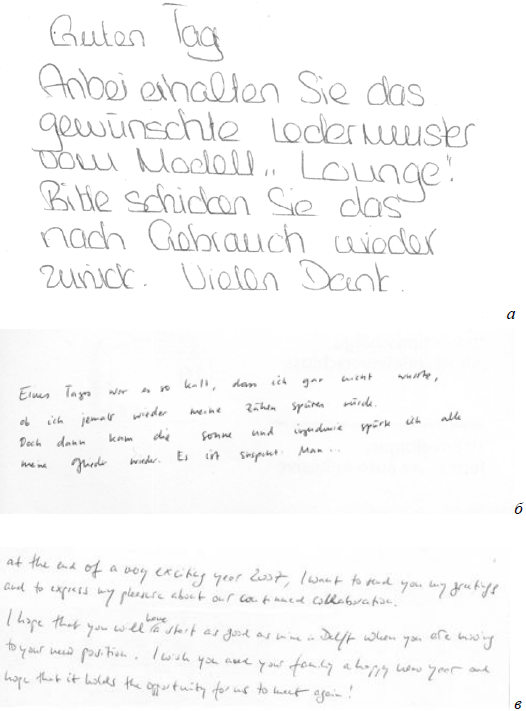 Guten Tag
Anbei erhalten Sie das
gewünschte Ledermuster
vom Modell „Lounge".
Bitte schicken Sie das
nach Gebrauch wieder
zurück. Vielen Dank.
а
Eines Tages war es so kalt, dass ich gar nicht wusste,
ob ich jemals wieder meine Zähen spüren würde.
Doch dann kam die Sonne und irgendwie spürte ich alle
meine Glieder wieder. Es ist Man..
б
at the end of a very exciting year 2007, I want to send you my greetings
and to express my pleasure about our continued collaboration.
have
I hope that you will a start as good as mine in Delft when you are moving
to your new position. I wish you and your family a happy new year and
hope that it holds the opportunity for us to meet again!
в